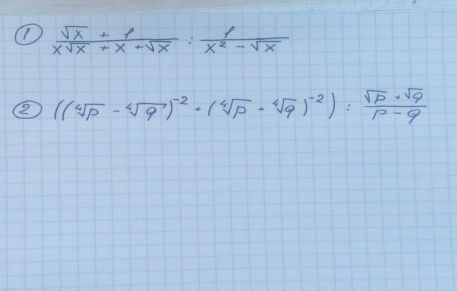 ① (√x + 1)/(x√x + x + √x) : 1/(x² - √x)
② ((⁴√p - ⁴√q)⁻² + (⁴√p + ⁴√q)⁻²) : (√p + √q)/(p - q)